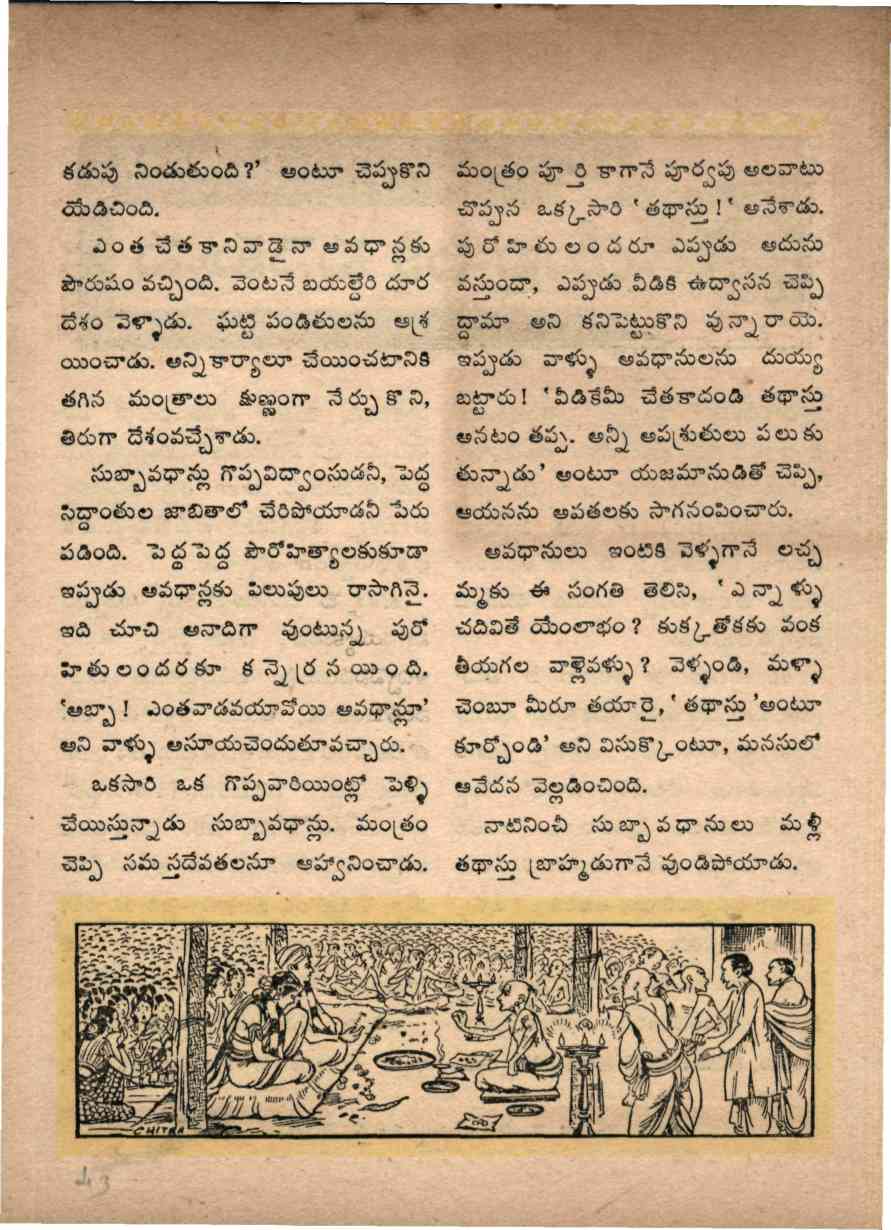 కడుపు నిండుతుంది?' అంటూ చెప్పుకొని
యేడిచింది.
ఎంత చేతకానివాడైనా అవధాన్లకు
పౌరుషం వచ్చింది. వెంటనే బయల్దేరి దూర
దేశం వెళ్ళాడు. ఘట్టి పండితులను ఆశ్ర
యించాడు. అన్నికార్యాలూ చేయించటానికి
తగిన మంత్రాలు క్షుణ్ణంగా నేర్చుకొని,
తిరుగా దేశంవచ్చేశాడు.
సుబ్బావధాన్లు గొప్పవిద్వాంసుడనీ, పెద్ద
సిద్ధాంతుల జాబితాలో చేరిపోయాడనీ పేరు
పడింది. పెద్దపెద్ద పౌరోహిత్యాలకుకూడా
ఇప్పుడు అవధాన్లకు పిలుపులు రాసాగినై.
ఇది చూచి అనాదిగా వుంటున్న పురో
హితులందరకూ కన్నెర్రనయింది.
'అబ్బా! ఎంతవాడవయావోయి అవధాన్లూ'
అని వాళ్ళు అసూయచెందుతూవచ్చారు.
ఒకసారి ఒక గొప్పవారియింట్లో పెళ్ళి
చేయిస్తున్నాడు సుబ్బావధాన్లు. మంత్రం
చెప్పి సమస్తదేవతలనూ ఆహ్వానించాడు.
మంత్రం పూర్తి కాగానే పూర్వపు అలవాటు
చొప్పున ఒక్కసారి 'తథాస్తు!' అనేశాడు.
పురోహితులందరూ ఎప్పుడు అదును
వస్తుందా, ఎప్పుడు వీడికి ఉద్వాసన చెప్పి
ద్దామా అని కనిపెట్టుకొని వున్నారాయె.
ఇప్పుడు వాళ్ళు అవధానులను దుయ్య
బట్టారు! 'వీడికేమీ చేతకాదండి తథాస్తు
అనటం తప్ప. అన్నీ అపశ్రుతులు పలుకు
తున్నాడు' అంటూ యజమానుడితో చెప్పి,
ఆయనను అవతలకు సాగనంపించారు.
అవధానులు ఇంటికి వెళ్ళగానే లచ్చ
మ్మకు ఈ సంగతి తెలిసి, 'ఎన్నాళ్ళు
చదివితే యేంలాభం? కుక్కతోకకు వంక
తీయగల వాళ్లెవళ్ళు? వెళ్ళండి, మళ్ళా
చెంబూ మీరూ తయారై, 'తథాస్తు'అంటూ
కూర్చోండి' అని విసుక్కొంటూ, మనసులో
ఆవేదన వెల్లడించింది.
నాటినించీ సుబ్బావధానులు మళ్లీ
తథాస్తు బ్రాహ్మడుగానే వుండిపోయాడు.
CHITRA
43